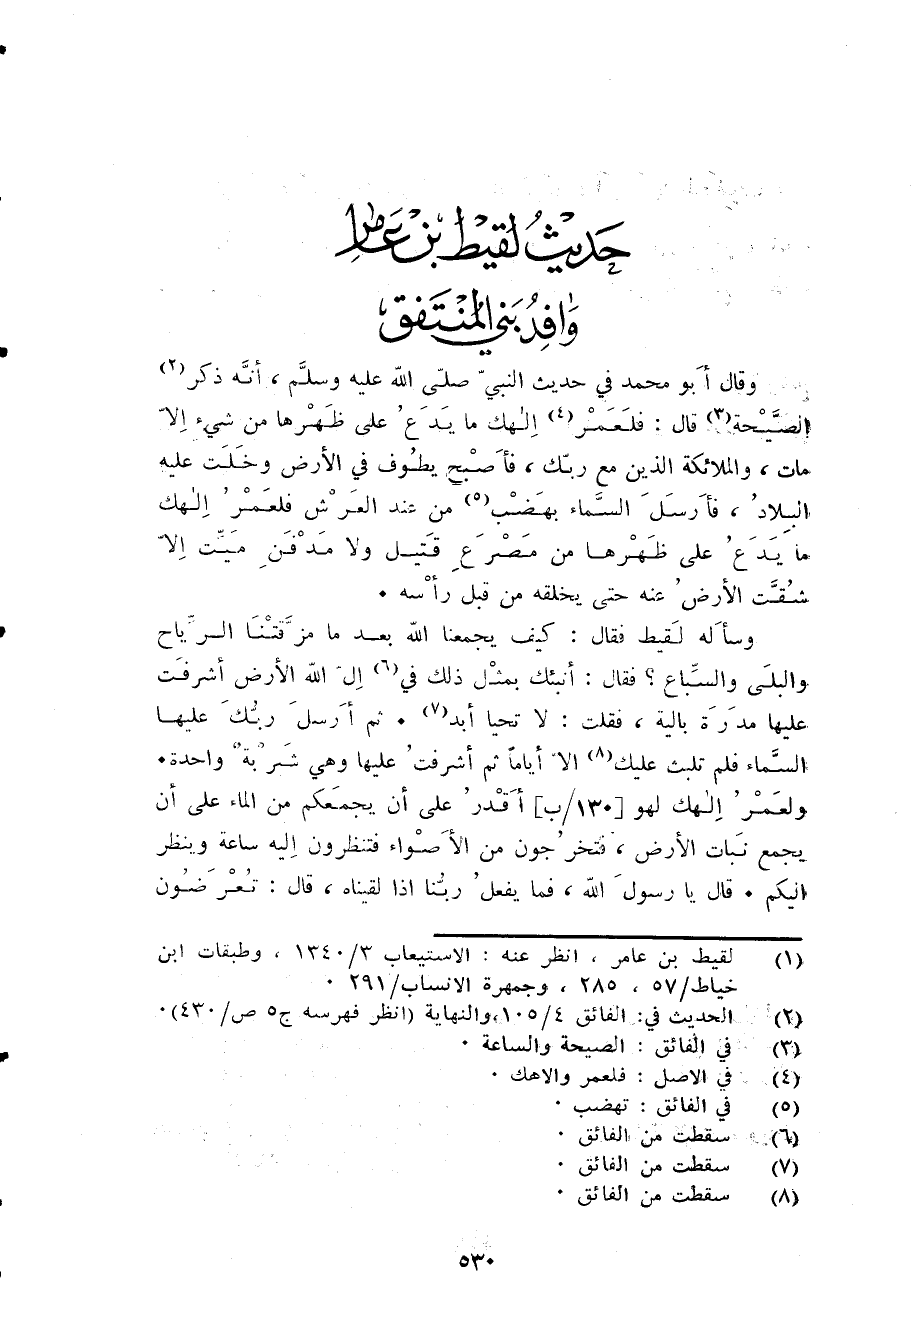 حَديْثُ لقيْط بْن عَامِر
وَافِدُ بَني المُنْتَفق
وقال أَبو محمد في حديث النبيّ صلّى الله عليه وسلَّم ، أنَّه ذكر(٢)
الصَّيْحة(٣) قال : فلَعَمْرُ(٤) إلٰهك ما يَدَعُ على ظَهْرها من شيء إلاّ
مات ، والملائكة الذين مع ربّك ، فأَصْبح يطُوف في الأرض وخَلَت عليه
البلادُ ، فأَرسَلَ السَّماء بهَضْب(٥) من عند العَرْش فلعَمْرُ إلٰهك
ما يَدَعُ على ظَهْرهـا من مَصْرَعِ قَتيـل ولا مَدْفَنِ مَيّت إلاّ
شُقَّت الأرضُ عنه حتى يخلقه من قبل رأْسه ٠
وسأله لَقيط فقال : كيف يجمعنا الله بعـد ما مزَّقتْنَا الـرِّياح
والبلَى والسِّباع ؟ فقال : أنبئك بمثْل ذلك في(٦) إلّ الله الأرض أشرفْت
عليها مدَرَة بالية ، فقلت : لا تحيا أبد(٧) ٠ ثم أَرسلَ ربُّك عليهـا
السَّماء فلم تلبث عليك(٨) الاّ أياماً ثم أشرفتُ عليها وهي شَرْبَةٌ واحدة٠
ولعَمْرُ إلٰهك لهو [١٣٠/ب] أَقْدرُ على أن يجمَعكم من الماء على أن
يجمع نَبات الأرض ، فتخرُجون من الأَصْواء فتنظرون إليه ساعة وينظر
اليكم ٠ قال يا رسولَ الله ، فما يفعلُ ربُّنا اذا لقيناه ، قال : تُعْرَضُون
(١) لقيط بن عامر ، انظر عنه : الاستيعاب ١٣٤٠/٣ ، وطبقات ابن
خياط/٥٧ ، ٢٨٥ ، وجمهرة الانساب/٢٩١ ٠
(٢) الحديث في: الفائق ١٠٥/٤،والنهاية (انظر فهرسه ج٥ ص/٤٣٠)٠
(٣) في الفائق : الصيحة والساعة ٠
(٤) في الاصل : فلعمر والاهك ٠
(٥) في الفائق : تهضب ٠
(٦) سقطت من الفائق ٠
(٧) سقطت من الفائق ٠
(٨) سقطت من الفائق ٠
٥٣٠